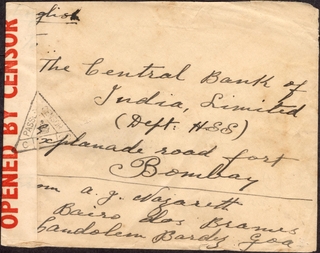 OPENED BY CENSOR
English
The Central Bank of
India, Limited
(Dept: HSS)
Esplanade road fort
Bombay
a. g. Nazareth
Bairo dos Brames
Candolem Bardez Goa